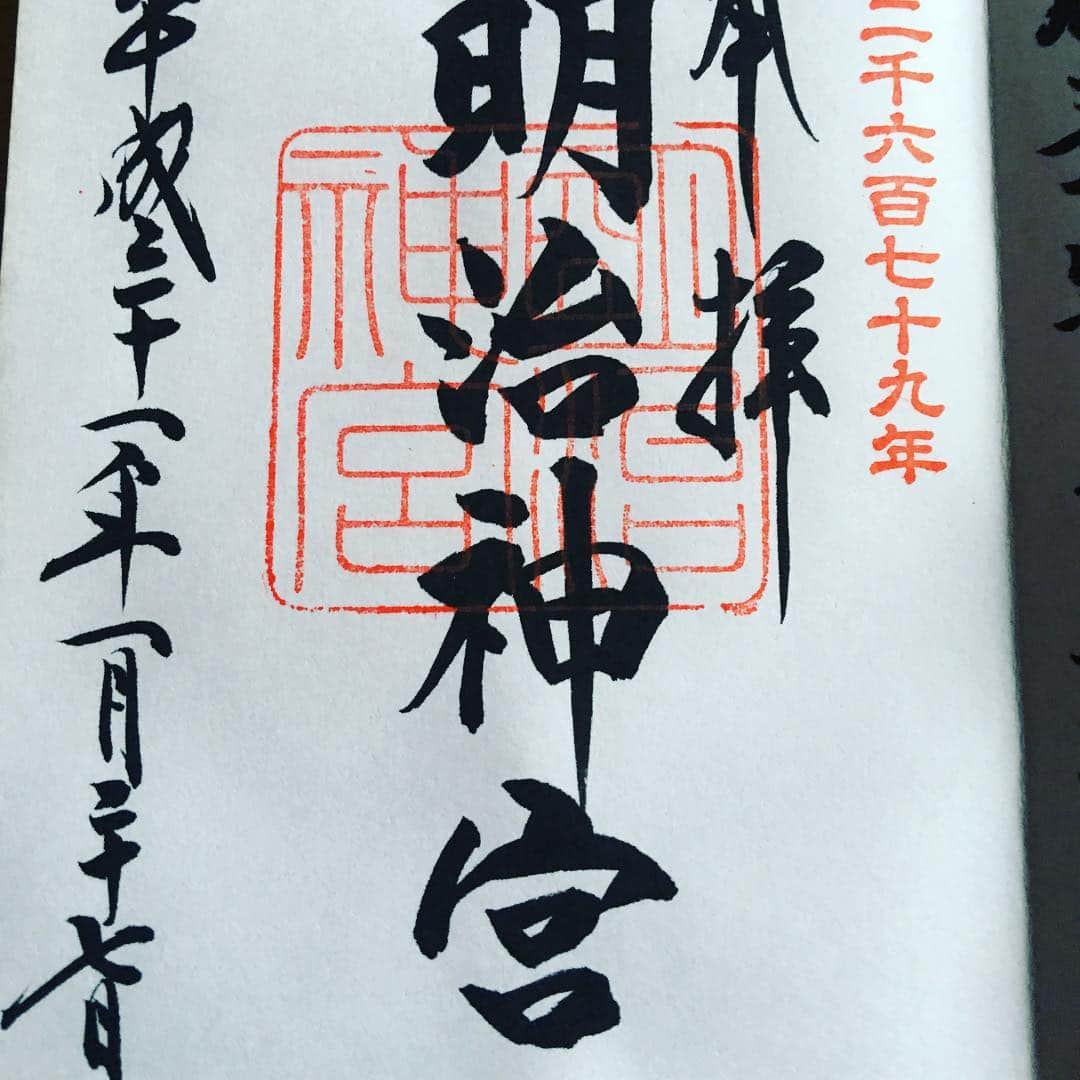 二千六百七十九年
奉拝
明治神宮
平成三十一年一月二十七日
明治神宮